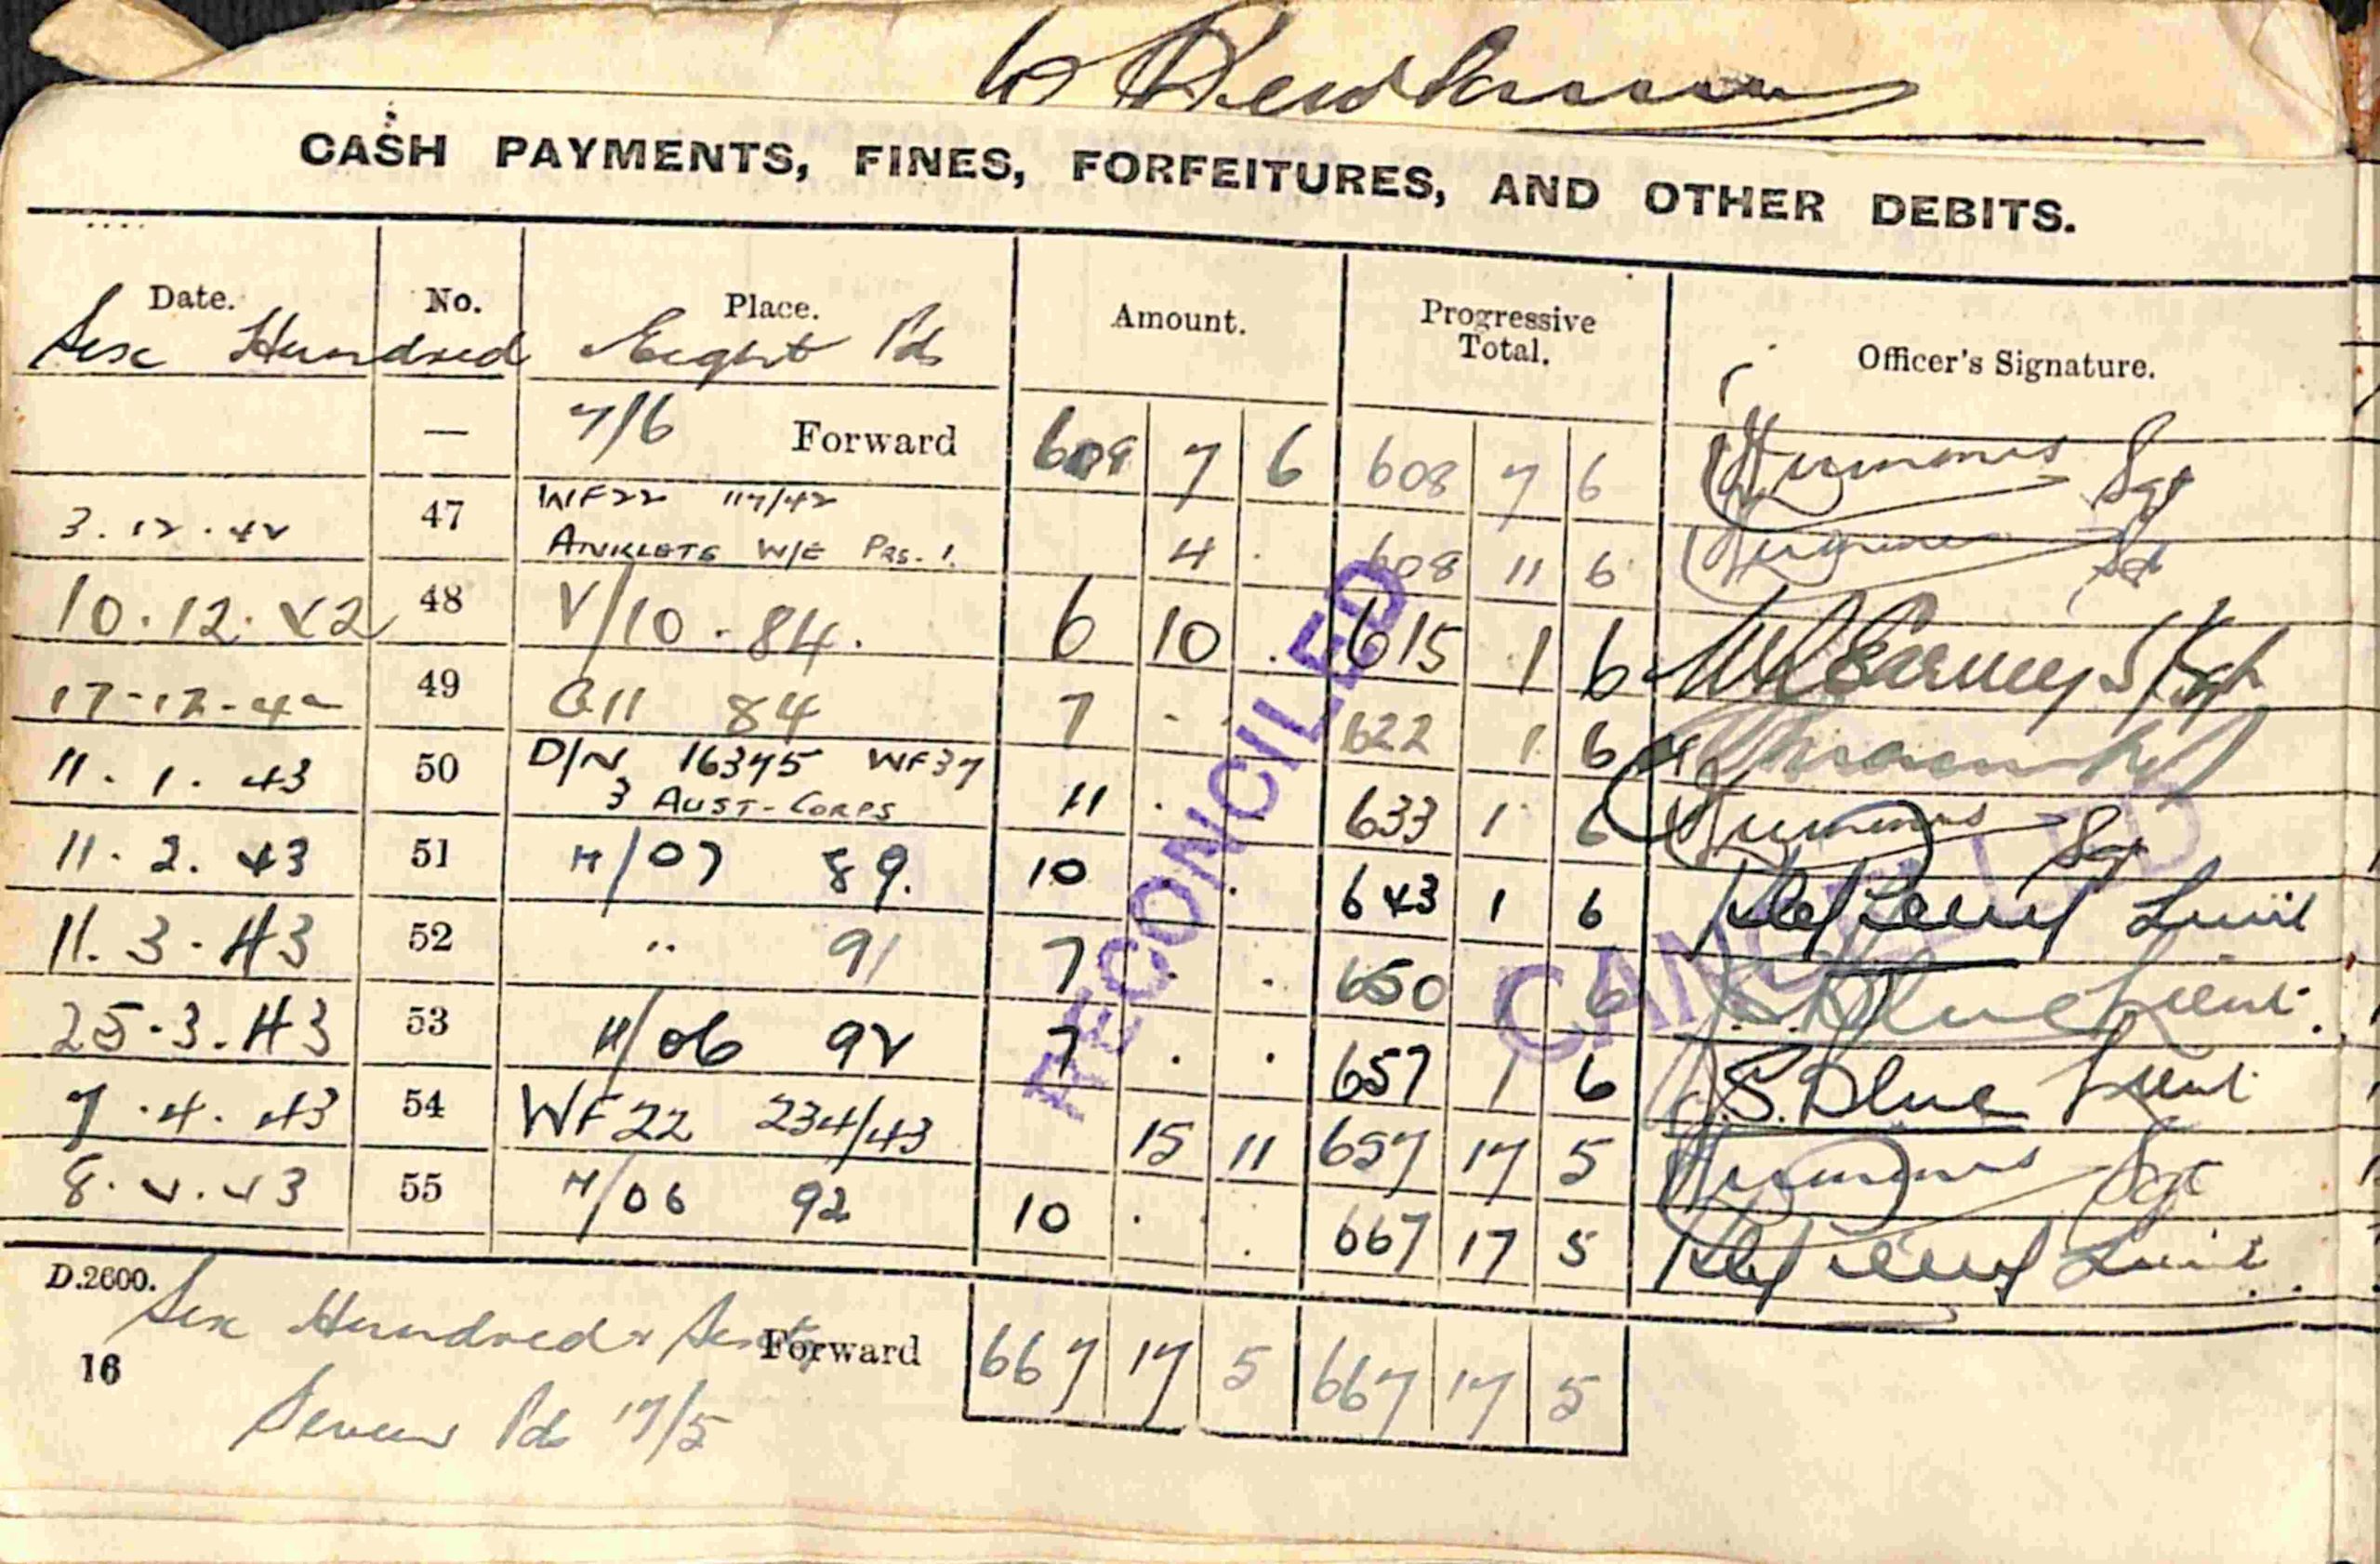 CASH PAYMENTS, FINES, FORFEITURES, AND OTHER DEBITS.
Date. No. Place. Amount. Progressive Total. Officer's Signature.
Six Hundred Eight Pds
— 7/6 Forward 608 7 6 608 7 6 Sgt
3.12.42 47 WF22 117/42 ANKLETS W/E PRS. 1. 4 . 608 11 6 Sgt
10.12.42 48 V/10 - 84. 6 10 . 615 1 6 S/Sgt
17-12-42 49 G11 84 7 - . 622 1 6
11.1.43 50 D/N 16375 WF37 3 AUST-CORPS 11 . 633 1 6 Sgt
11.2.43 51 H/07 89. 10 . . 643 1 6 Lieut
11.3.43 52 " 91 7 . . 650 1 6 Blue Lieut.
25.3.43 53 H/06 92 7 . . 657 1 6 J.S. Blue Lieut
7.4.43 54 WF22 234/43 15 11 657 17 5 Sgt
8.4.43 55 H/06 92 10 . . 667 17 5 Lieut.
RECONCILED
D.2600.
Six Hundred & Sixty Forward 667 17 5 667 17 5
16
Seven Pds 17/5